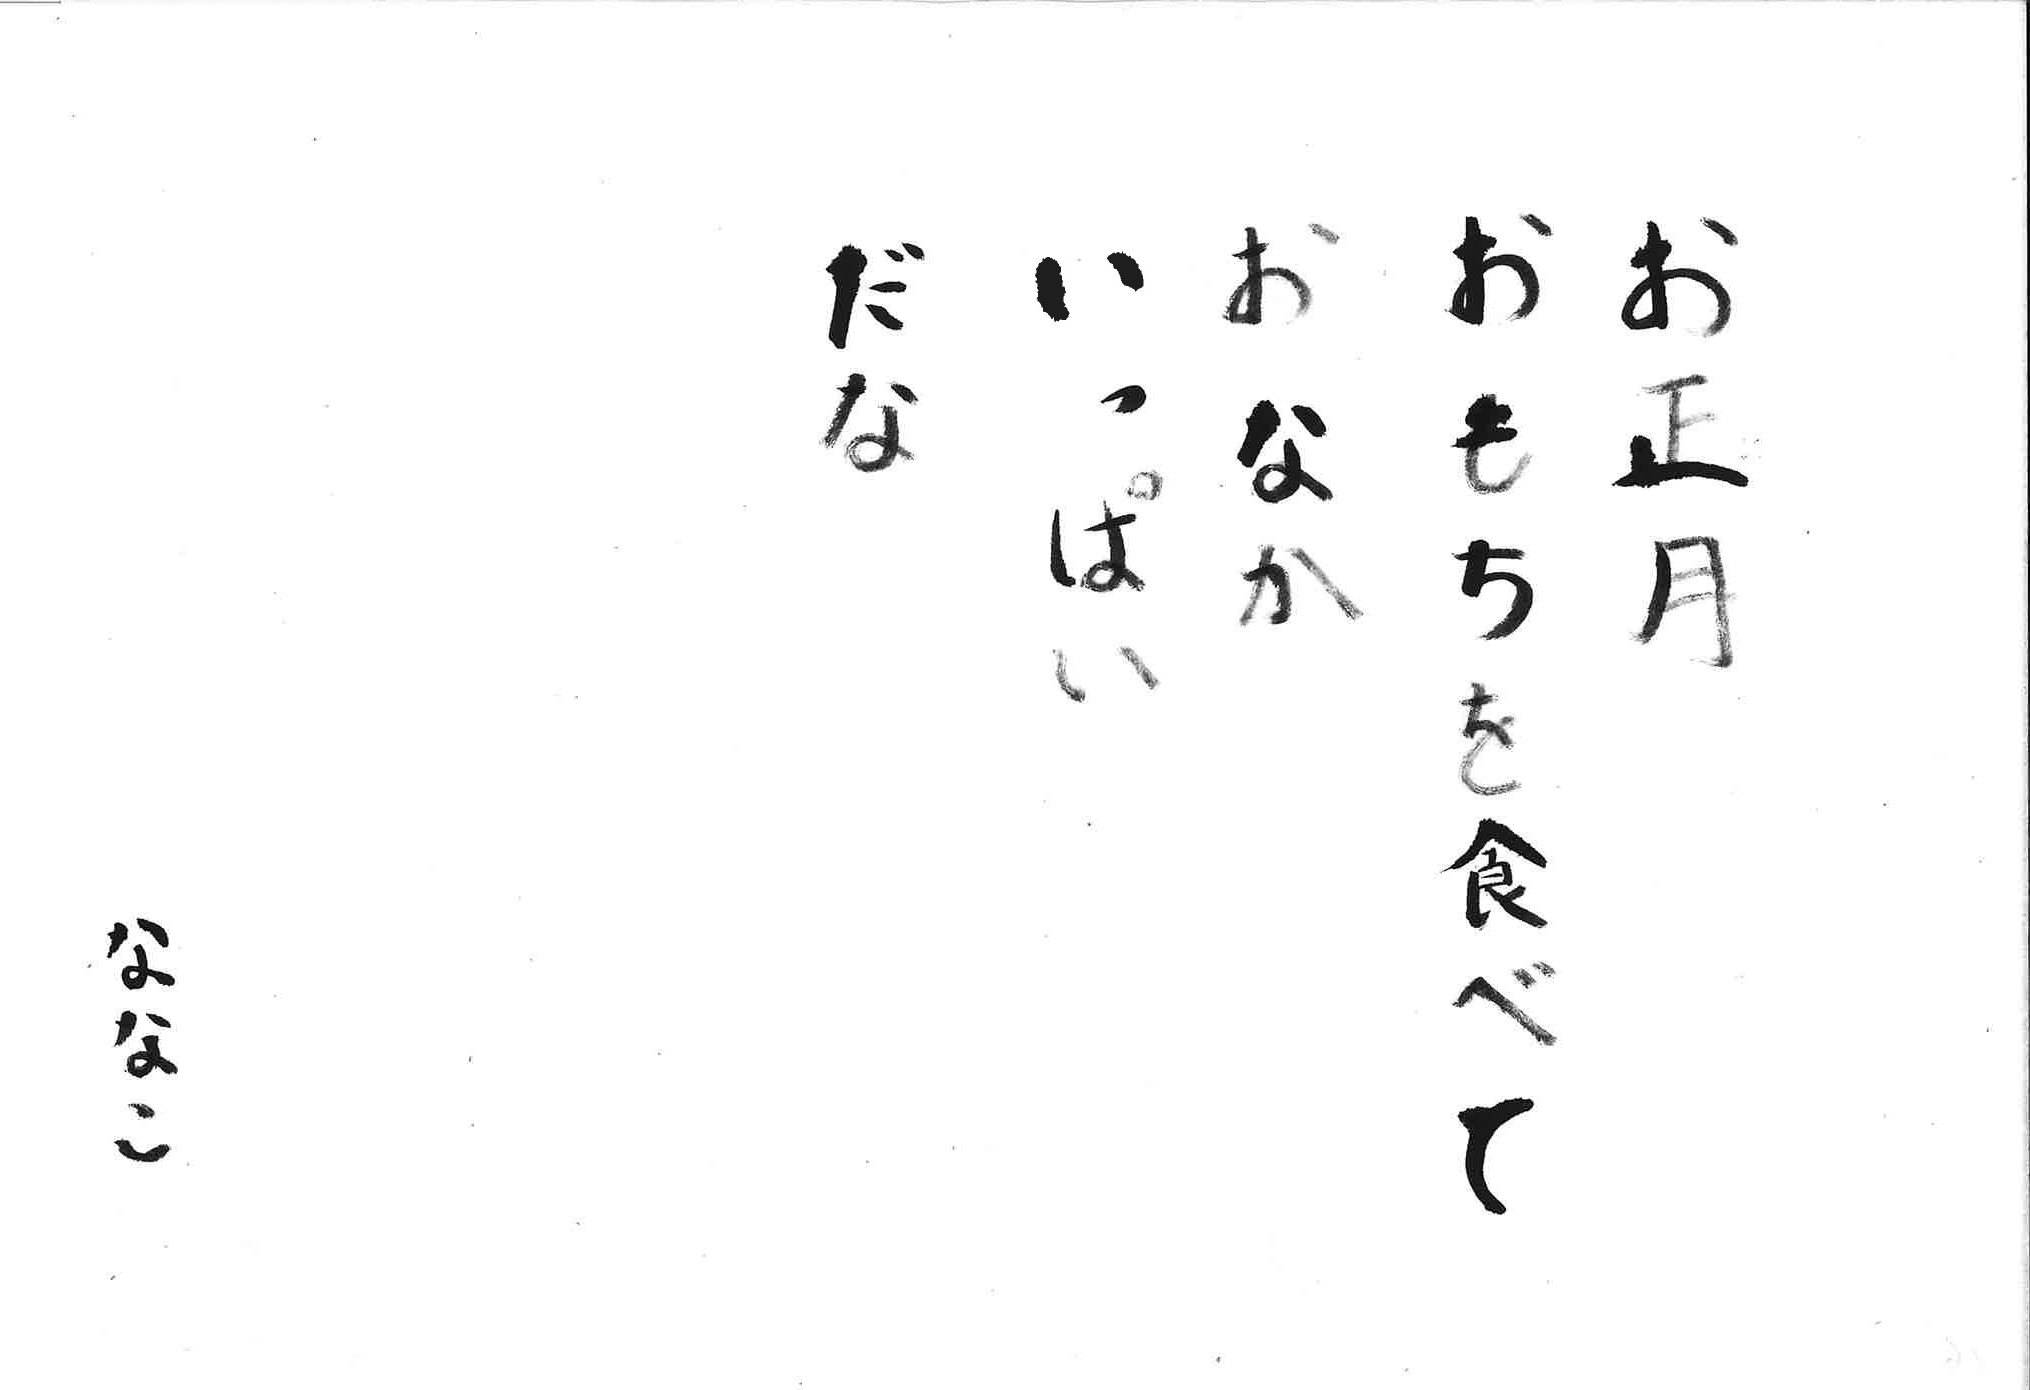 お正月
おもちを食べて
おなか
いっぱい
だな
ななこ